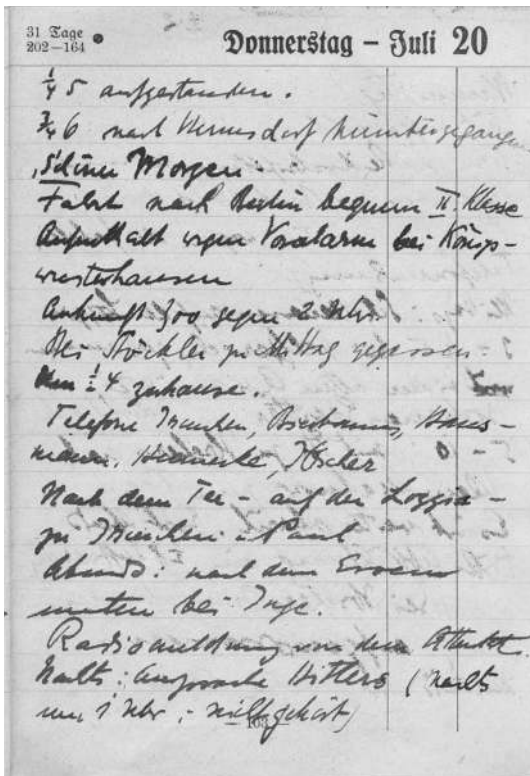 31 Tage
202–164
Donnerstag – Juli 20
¼ 5 aufgestanden.
¾ 6 nach Hermsdorf hinuntergegangen
Schöner Morgen
Fahrt nach Berlin bequem II. Klasse
Aufenthalt wegen Voralarm bei Königs-
wusterhausen
Ankunft Zoo gegen 2 Uhr
Bei Stöckler zu Mittag gegessen.
Um ½ 4 zuhause.
Telefone
Nach dem Tee – auf der Loggia –
zu
Abends: nach dem Essen
unten bei Inge.
Radiomeldung von dem Attentat.
Nachts: Ansprache Hitlers (nachts
um 1 Uhr – nicht gehört)
— 163 —